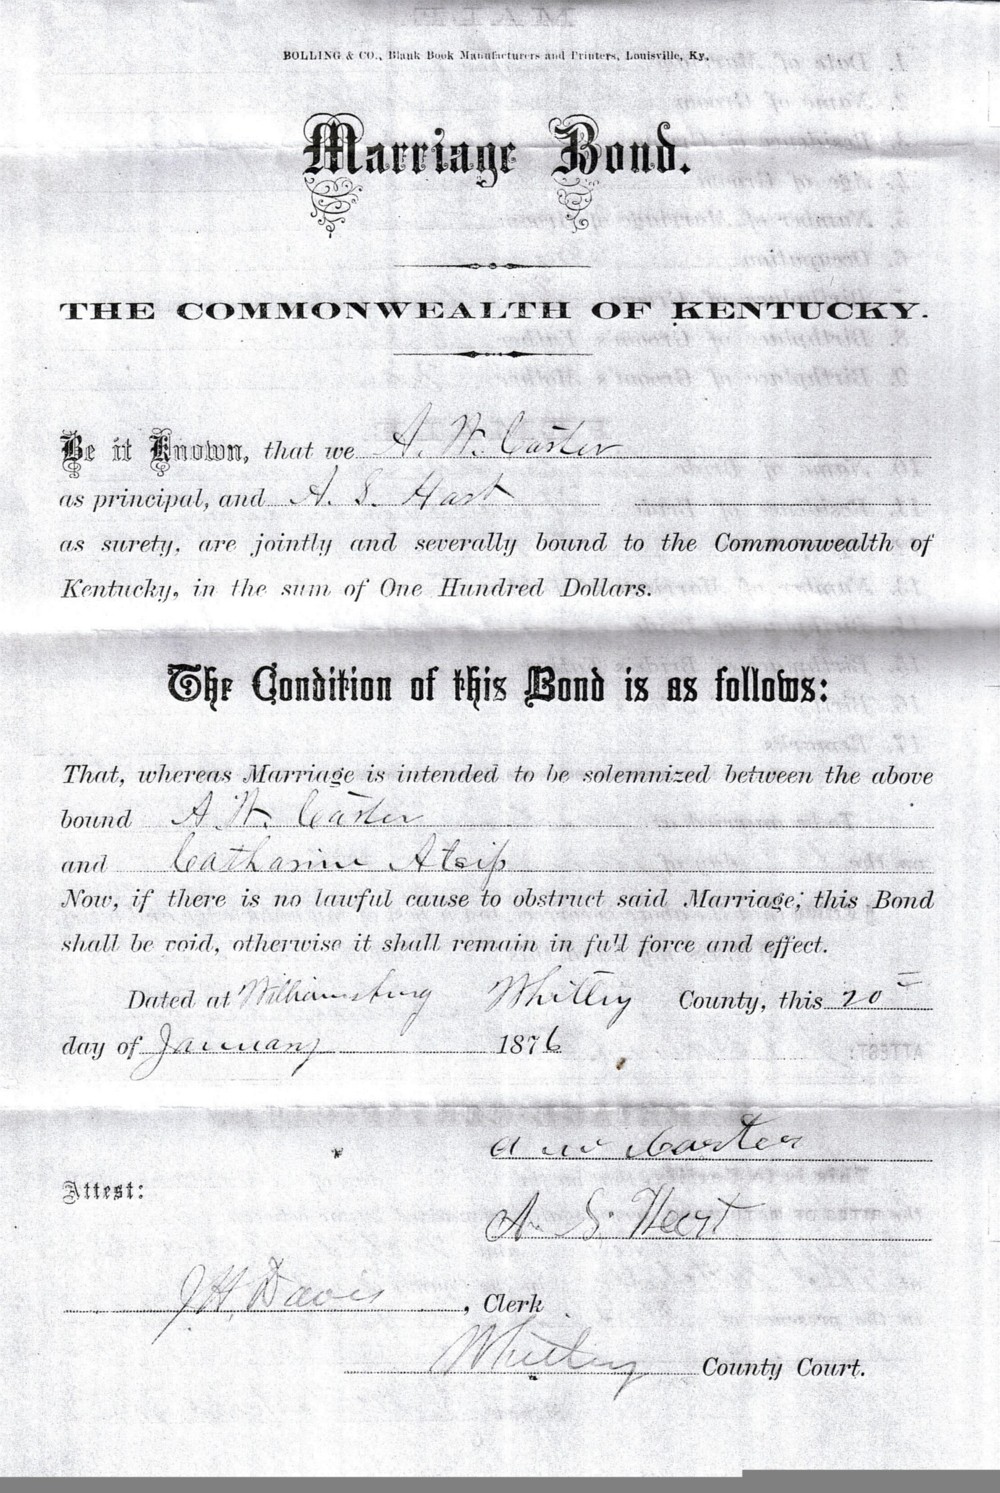 BOLLING & CO., Blank Book Manufacturers and Printers, Louisville, Ky.
Marriage Bond.
THE COMMONWEALTH OF KENTUCKY.
Be it Known, that we A. W. Carter
as principal, and A. S. Hart
as surety, are jointly and severally bound to the Commonwealth of
Kentucky, in the sum of One Hundred Dollars.
The Condition of this Bond is as follows:
That, whereas Marriage is intended to be solemnized between the above
bound A. W. Carter
and Catharine
Now, if there is no lawful cause to obstruct said Marriage, this Bond
shall be void, otherwise it shall remain in full force and effect.
Dated at Williamsburg Whitley County, this 20
day of January 1876
A W Carter
Attest:
A. S. Hart
J H Davis, Clerk
Whitley County Court.